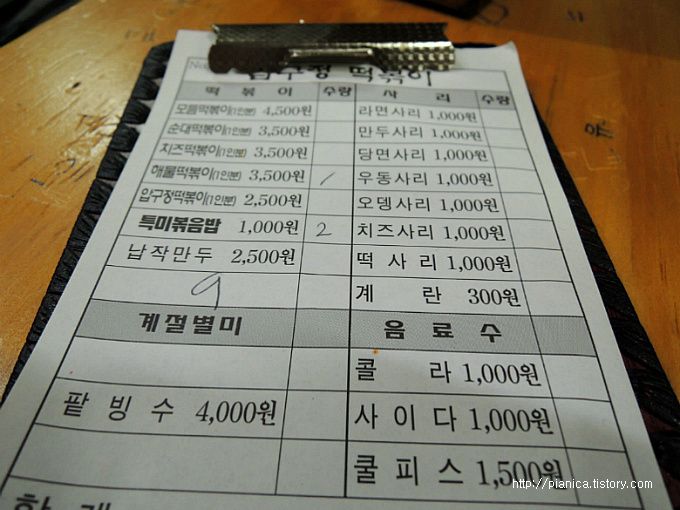 No.
압구정 떡볶이
떡 볶 이 수량 사 리 수량
모듬떡볶이(1인분) 4,500원 라면사리 1,000원
순대떡볶이(1인분) 3,500원 만두사리 1,000원
치즈떡볶이(1인분) 3,500원 당면사리 1,000원
해물떡볶이(1인분) 3,500원 / 우동사리 1,000원
압구정떡볶이(1인분) 2,500원 오뎅사리 1,000원
특미볶음밥 1,000원 2 치즈사리 1,000원
납작만두 2,500원 떡 사리 1,000원
9 계 란 300원
계절별미 음 료 수
콜 라 1,000원
팥 빙 수 4,000원 사 이 다 1,000원
쿨 피 스 1,500원
합 계
http://pianica.tistory.com